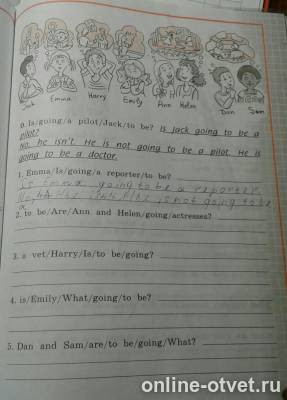 Jack Emma Harry Emily Ann Helen Dan Sam
0. Is/going/a pilot/Jack/to be? Is Jack going to be a
pilot?
No, he isn't. He is not going to be a pilot. He is
going to be a doctor.
1. Emma/Is/going/a reporter/to be?
is Emma going to be a reporter
is not going to be
a
2. to be/Are/Ann and Helen/going/actresses?
3. a vet/Harry/Is/to be/going?
4. is/Emily/What/going/to be?
5. Dan and Sam/are/to be/going/What?
online-otvet.ru